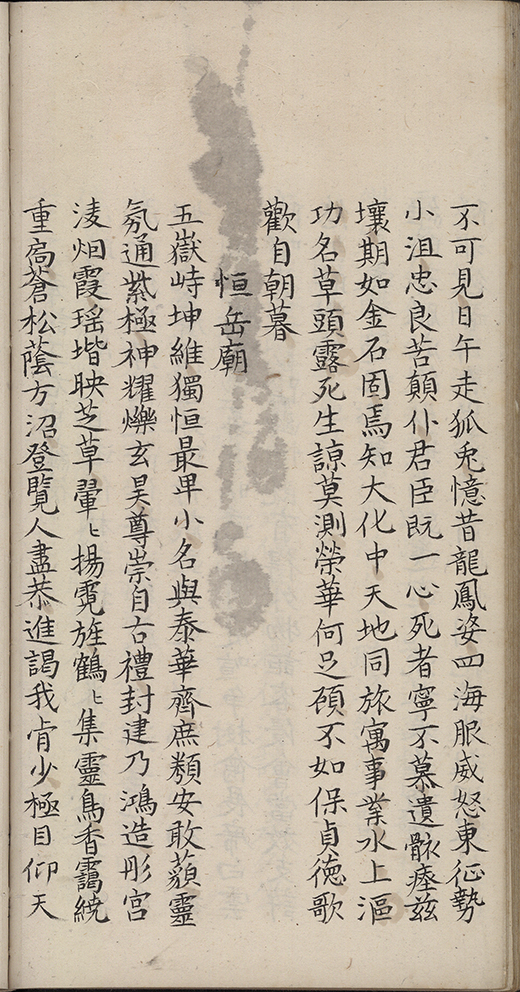 不可見日午走狐兎憶昔龍鳳姿四海服威怒東征勢
小沮忠良苦顛仆君臣既一心死者寧不慕遺骸瘞兹
壤期如金石固焉知大化中天地同旅寓事業水上漚
功名草頭露死生諒莫測榮華何足顧不如保貞德歌
歡自朝暮
恒岳廟
五嶽峙坤維獨恒最卑小名與泰華齊庶類安敢藐靈
氛通紫極神耀爍玄昊尊崇自古禮封建乃鴻造彤宮
淩烟霞瑶堦映芝草翬〻揚霓旌鶴〻集靈鳥香靄繞
重扃蒼松蔭方沼登覽人盡恭進謁我肯少極目仰天